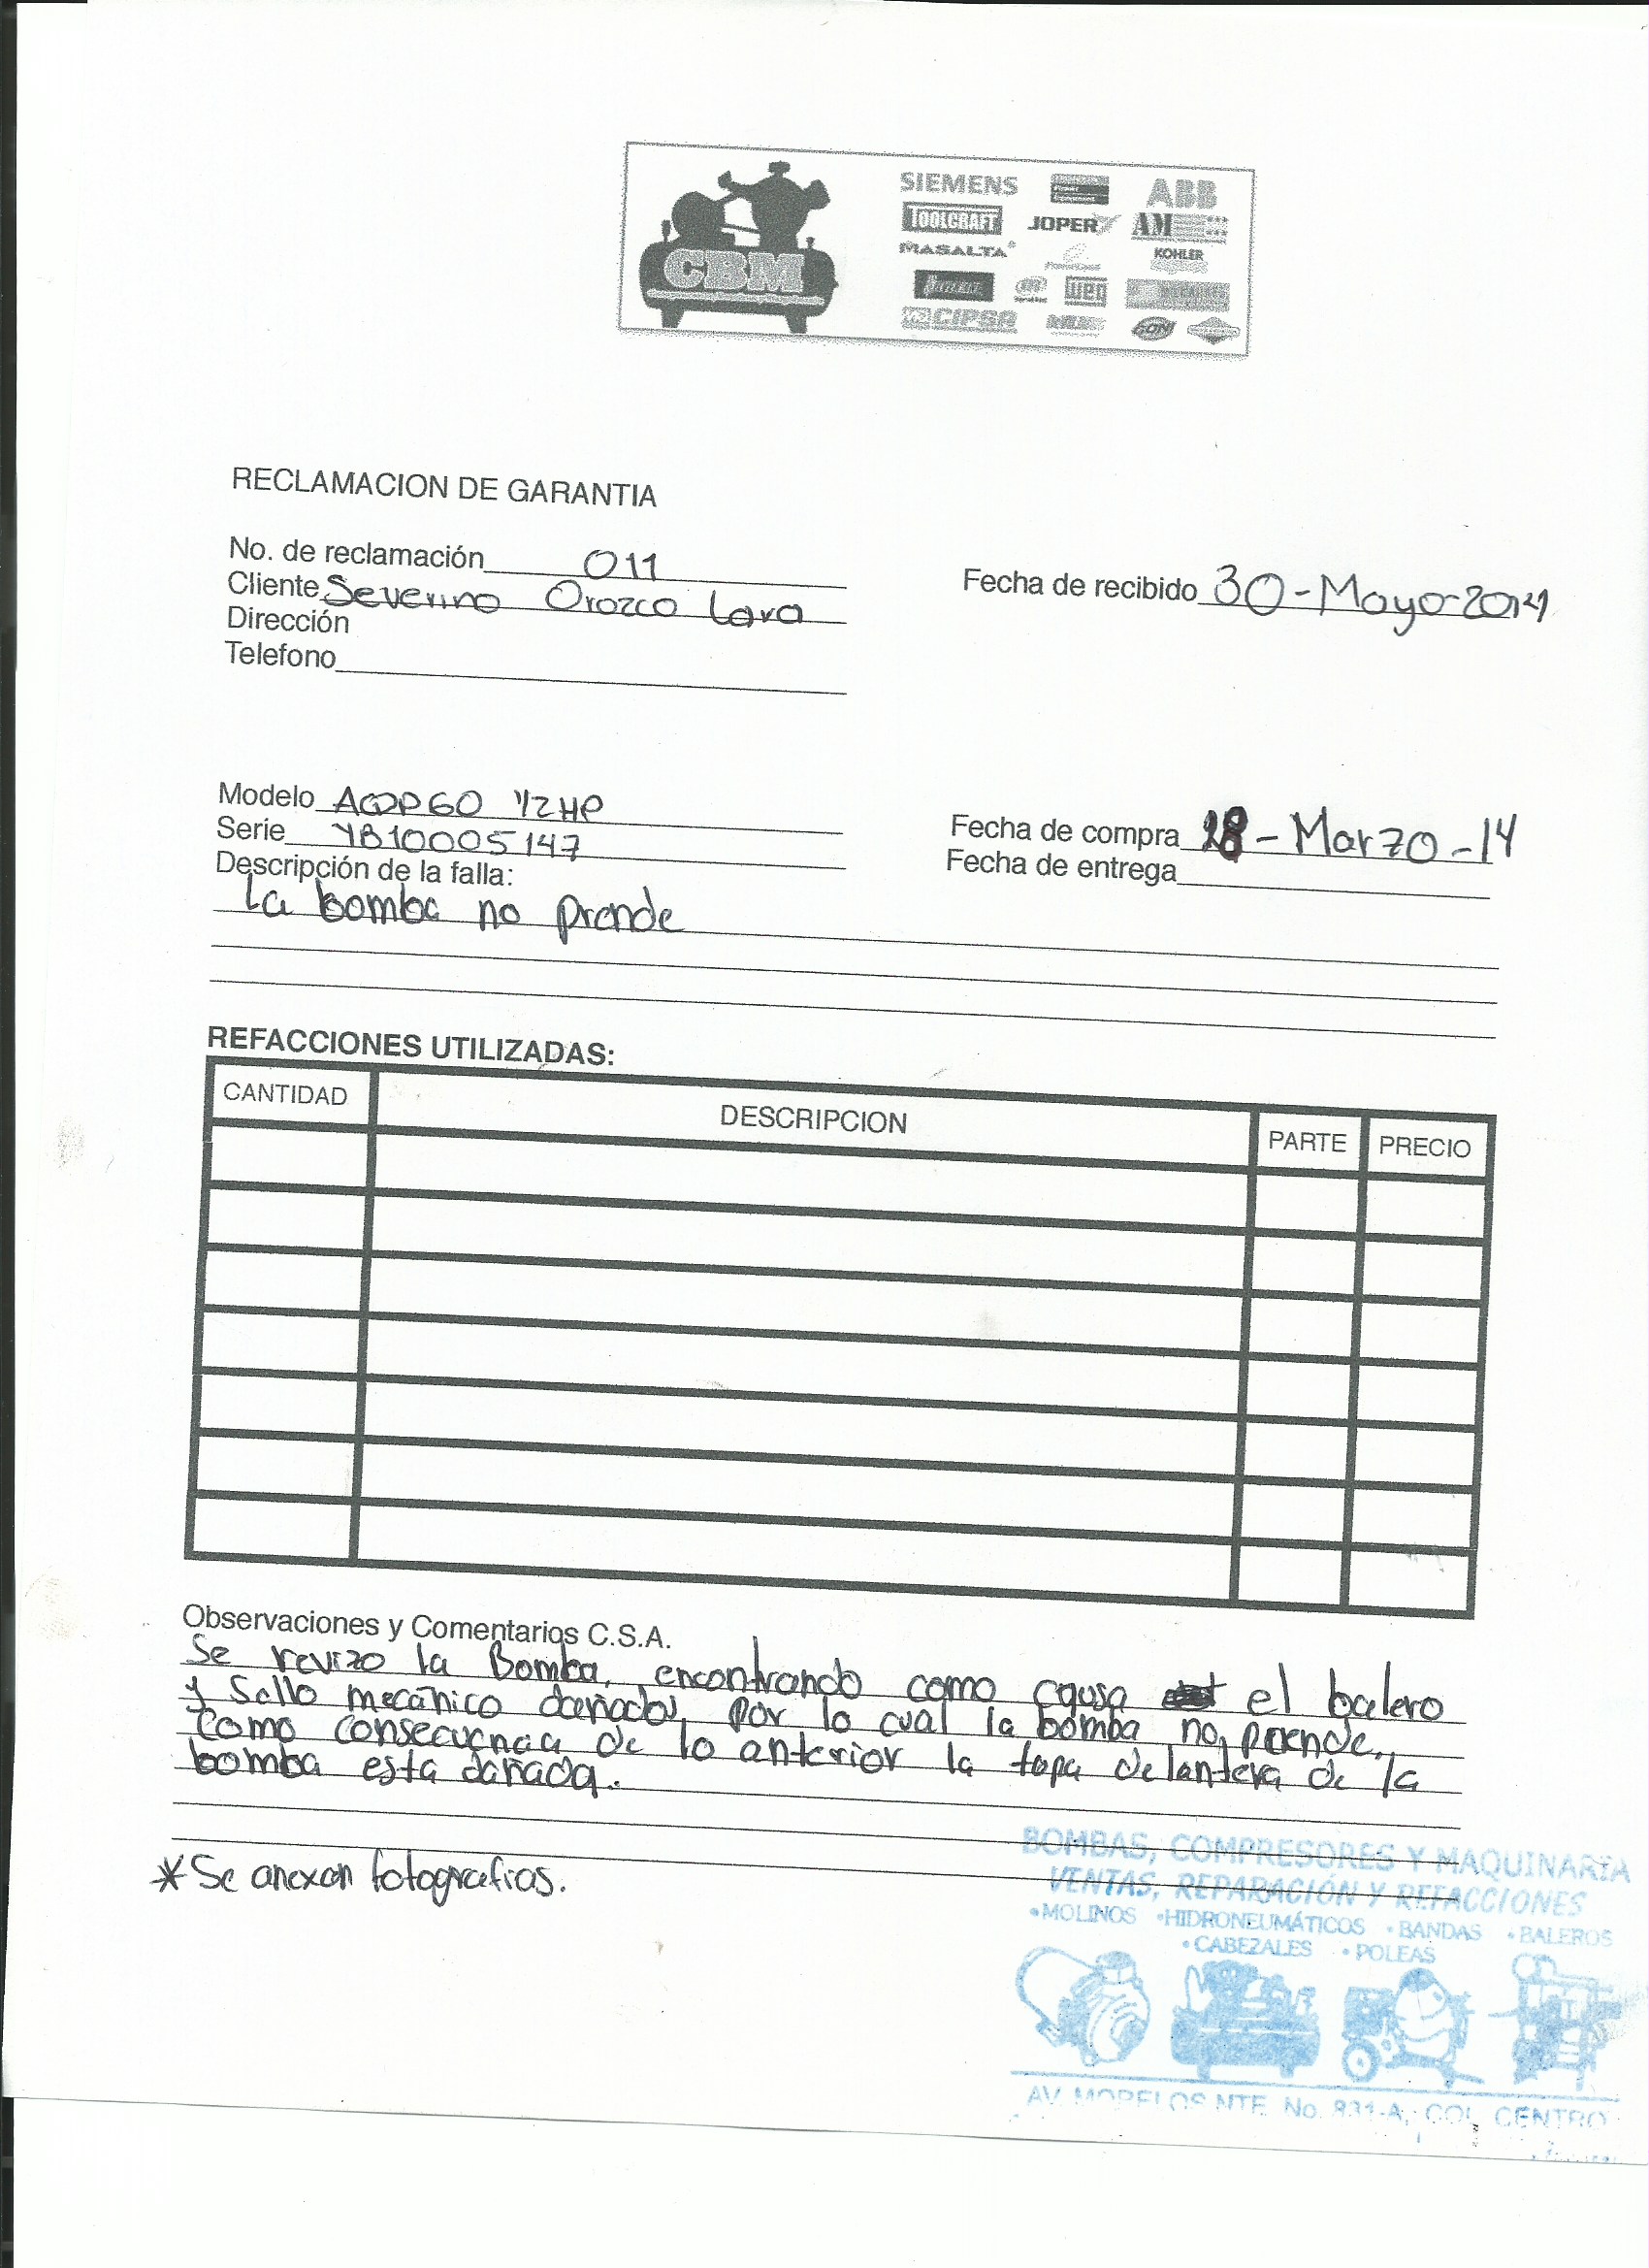 SIEMENS
ABB
TOOLCRAFT JOPER AM
MASALTA
KOHLER
CBM
weg
CIPSA
GONI
RECLAMACION DE GARANTIA
No. de reclamación 011
Cliente Severino Orozco Lara
Fecha de recibido 30-Mayo-2014
Dirección
Telefono
Modelo AQDP60 1/2HP
Serie YB10005147
Fecha de compra 28-Marzo-14
Fecha de entrega
Descripción de la falla:
La bomba no prende
REFACCIONES UTILIZADAS:
CANTIDAD DESCRIPCION PARTE PRECIO
Observaciones y Comentarios C.S.A.
Se revizo la Bomba, encontrando como causa el balero
y Sello mecánico dañados, por lo cual la bomba no prende,
como consecuencia de lo anterior la tapa delantera de la
bomba esta dañada.
*Se anexan fotografias.
BOMBAS, COMPRESORES Y MAQUINARIA
VENTAS, REPARACIÓN Y REFACCIONES
•MOLINOS •HIDRONEUMÁTICOS •BANDAS •BALEROS
•CABEZALES •POLEAS
AV. MORELOS NTE. No. 831-A, COL. CENTRO